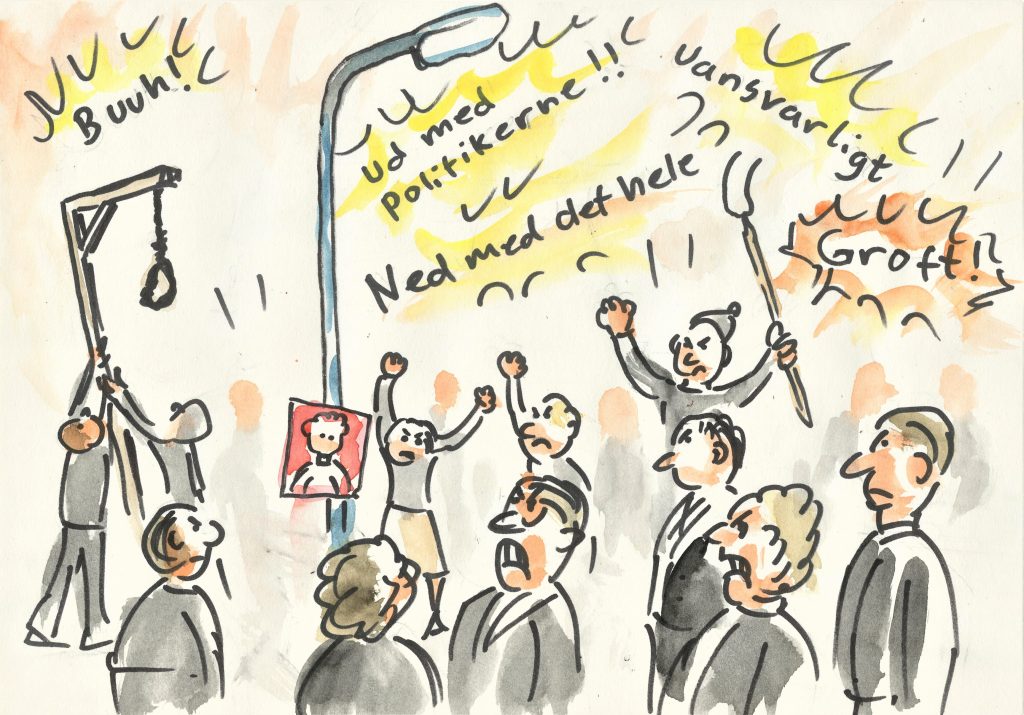 Buuh!
ud med
politikerne!!
Ned med det hele
uansvarligt
Groft!